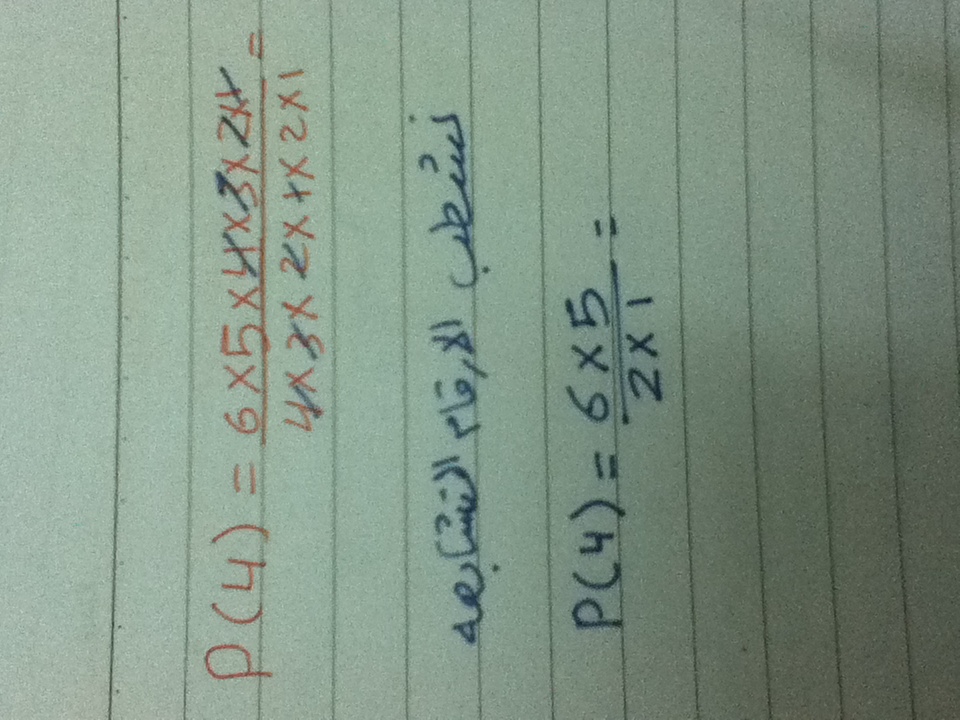 P(4) = 6×5×4×3×2×1 =
4×3×2×1×2×1
نشطب الارقام المتشابهه
P(4) = 6×5 =
2×1